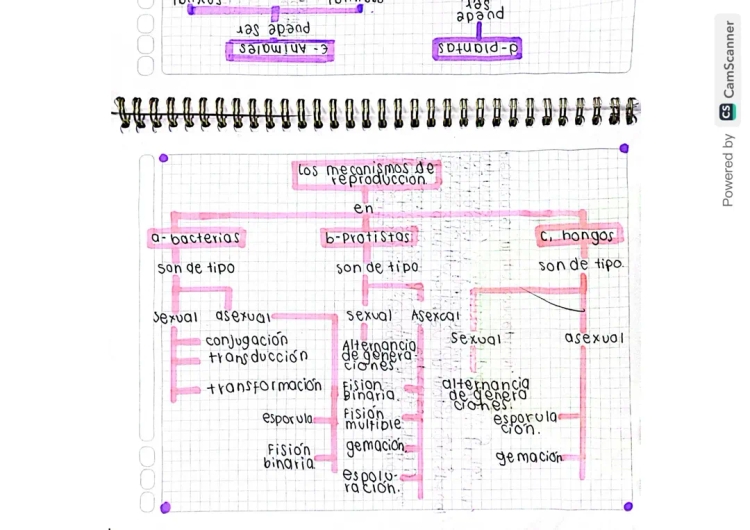 sexual
puede ser
e- Animales
puede
ser
d- plantas
Los mecanismos de
reproducción
en
a- bacterias
son de tipo
sexual
asexual
conjugación
transducción
transformación
esporula
Fisión
binaria
b- Protistas
son de tipo
sexual
Asexcal
Alternancia
de genera
ciones.
Fision
Binaria.
Fisión
multiple.
gemación.
espolu-
ración.
C. hongos
son de tipo.
sexual
asexual
alternancia
de genera
ciones.
esporula
ción.
gemación
Powered by CS CamScanner